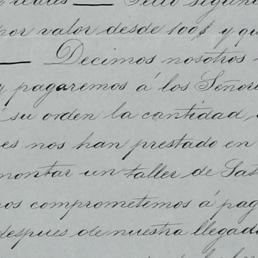 reales — Sello segund
por valor desde 100$ y qu
— Decimos nosotros
y pagaremos á los Señore
su orden la cantidad
es nos han prestado en
montar un taller de Sas
nos comprometemos á pag
despues de nuestra llegada